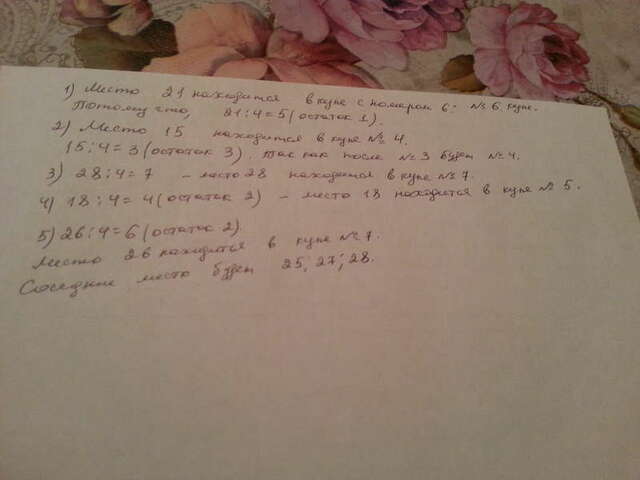 1) Место 21 находится в купе с номером 6. №6 купе.
Потому что, 21:4=5 (остаток 1).
2) Место 15 находится в купе № 4.
15:4=3 (остаток 3). Так как после №3 будет №4.
3) 28:4=7 – место 28 находится в купе №7.
4) 18:4=4 (остаток 2) – место 18 находится в купе № 5.
5) 26:4=6 (остаток 2).
Место 26 находится в купе №7.
Соседние место будет 25; 27; 28.